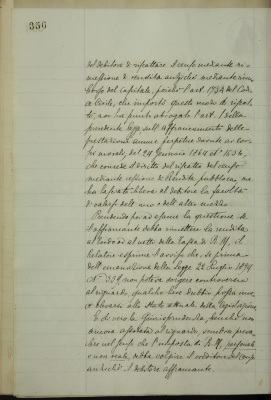 356
del debitore di riscattare il censo mediante ri-
messione di rendita anzichè mediante rim-
borso del capitale, poichè l'art. 1784 del Codi
ce Civile, che imposto questo modo di riscat-
to, non ha punto abrogato l'art. 1 della
precedente legge sull'affrancamento delle
prestazioni annue perpetue dovute ai cor-
pi morali, del 24 Gennaio 1864 N° 1636,
che concede il diritto del riscatto del censo
mediante cessione di Rendita pubblica; ma
ha lasciato libera al debitore la facoltà
di valersi dell'uno o dell'altro modo.
Prendendo poi ad esame la questione se
l'affrancante debba rimettere la rendita
al lordo od al netto della Tassa di R. M., il
Relatore esprime l'avviso che, se prima
dell'emanazione della Legge 22 Luglio 1894
N° 339 non poteva sorgere controversia
al riguardo, qualche lieve dubbio possa muo-
versi allo stato attuale della legislazione.
E di vero la Giurisprudenza, benchè non
ancora assodata al riguardo, sembra preva-
lere nel senso che l'imposta di R. M., personale
e non reale, debba colpire il creditore del censo
anzichè il debitore affrancante.